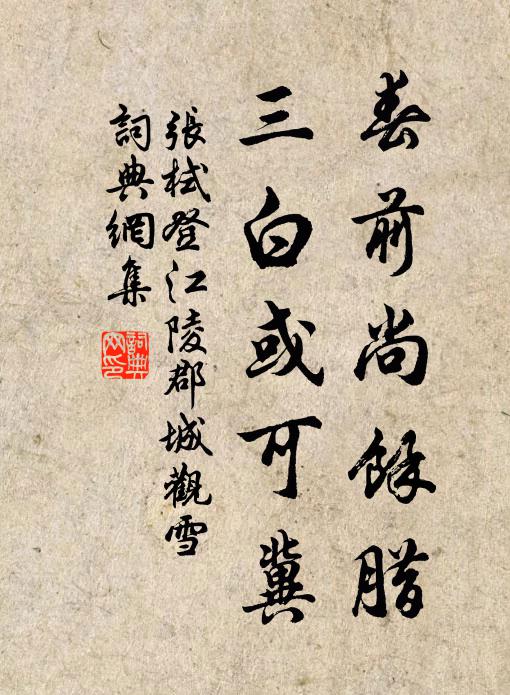 春前尚餘腊
三白或可冀
張栻登江陵郡城觀雪
詞典網集
詞典
网印